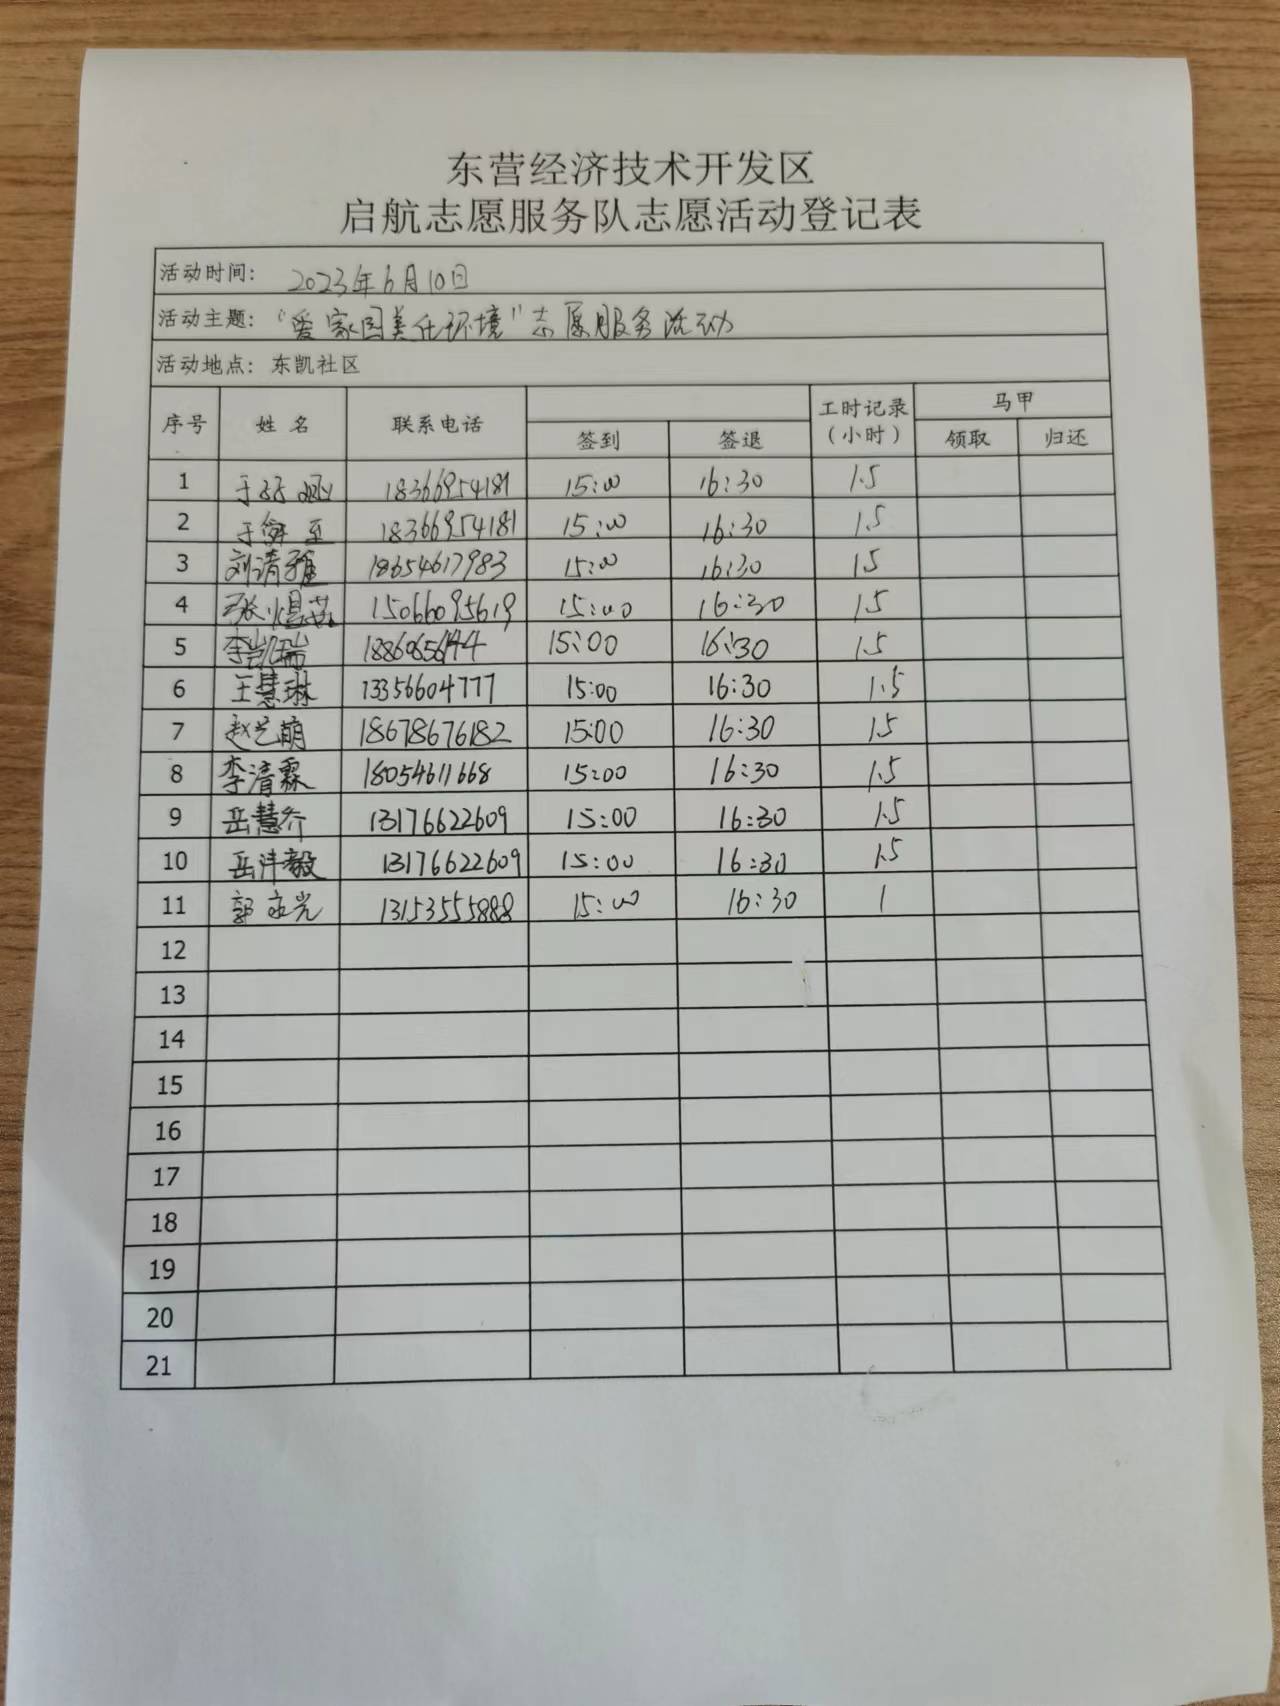 东营经济技术开发区
启航志愿服务队志愿活动登记表
活动时间： 2023年6月10日
活动主题： “爱家园美化环境”志愿服务活动
活动地点：东凯社区
序号 姓名 联系电话 签到 签退 工时记录（小时） 马甲 领取 归还
1 于 18366954181 15:00 16:30 1.5
2 于舜至 18366954181 15:00 16:30 1.5
3 刘清雅 18654617983 15:00 16:30 1.5
4 张煜 15066095619 15:00 16:30 1.5
5 李凯瑞 15:00 16:30 1.5
6 王慧琳 13356604777 15:00 16:30 1.5
7 赵艺萌 18678676182 15:00 16:30 1.5
8 李清霖 18054611668 15:00 16:30 1.5
9 岳慧乔 13176622609 15:00 16:30 1.5
10 岳沣毅 13176622609 15:00 16:30 1.5
11 郭永光 13153555888 15:00 16:30 1
12
13
14
15
16
17
18
19
20
21